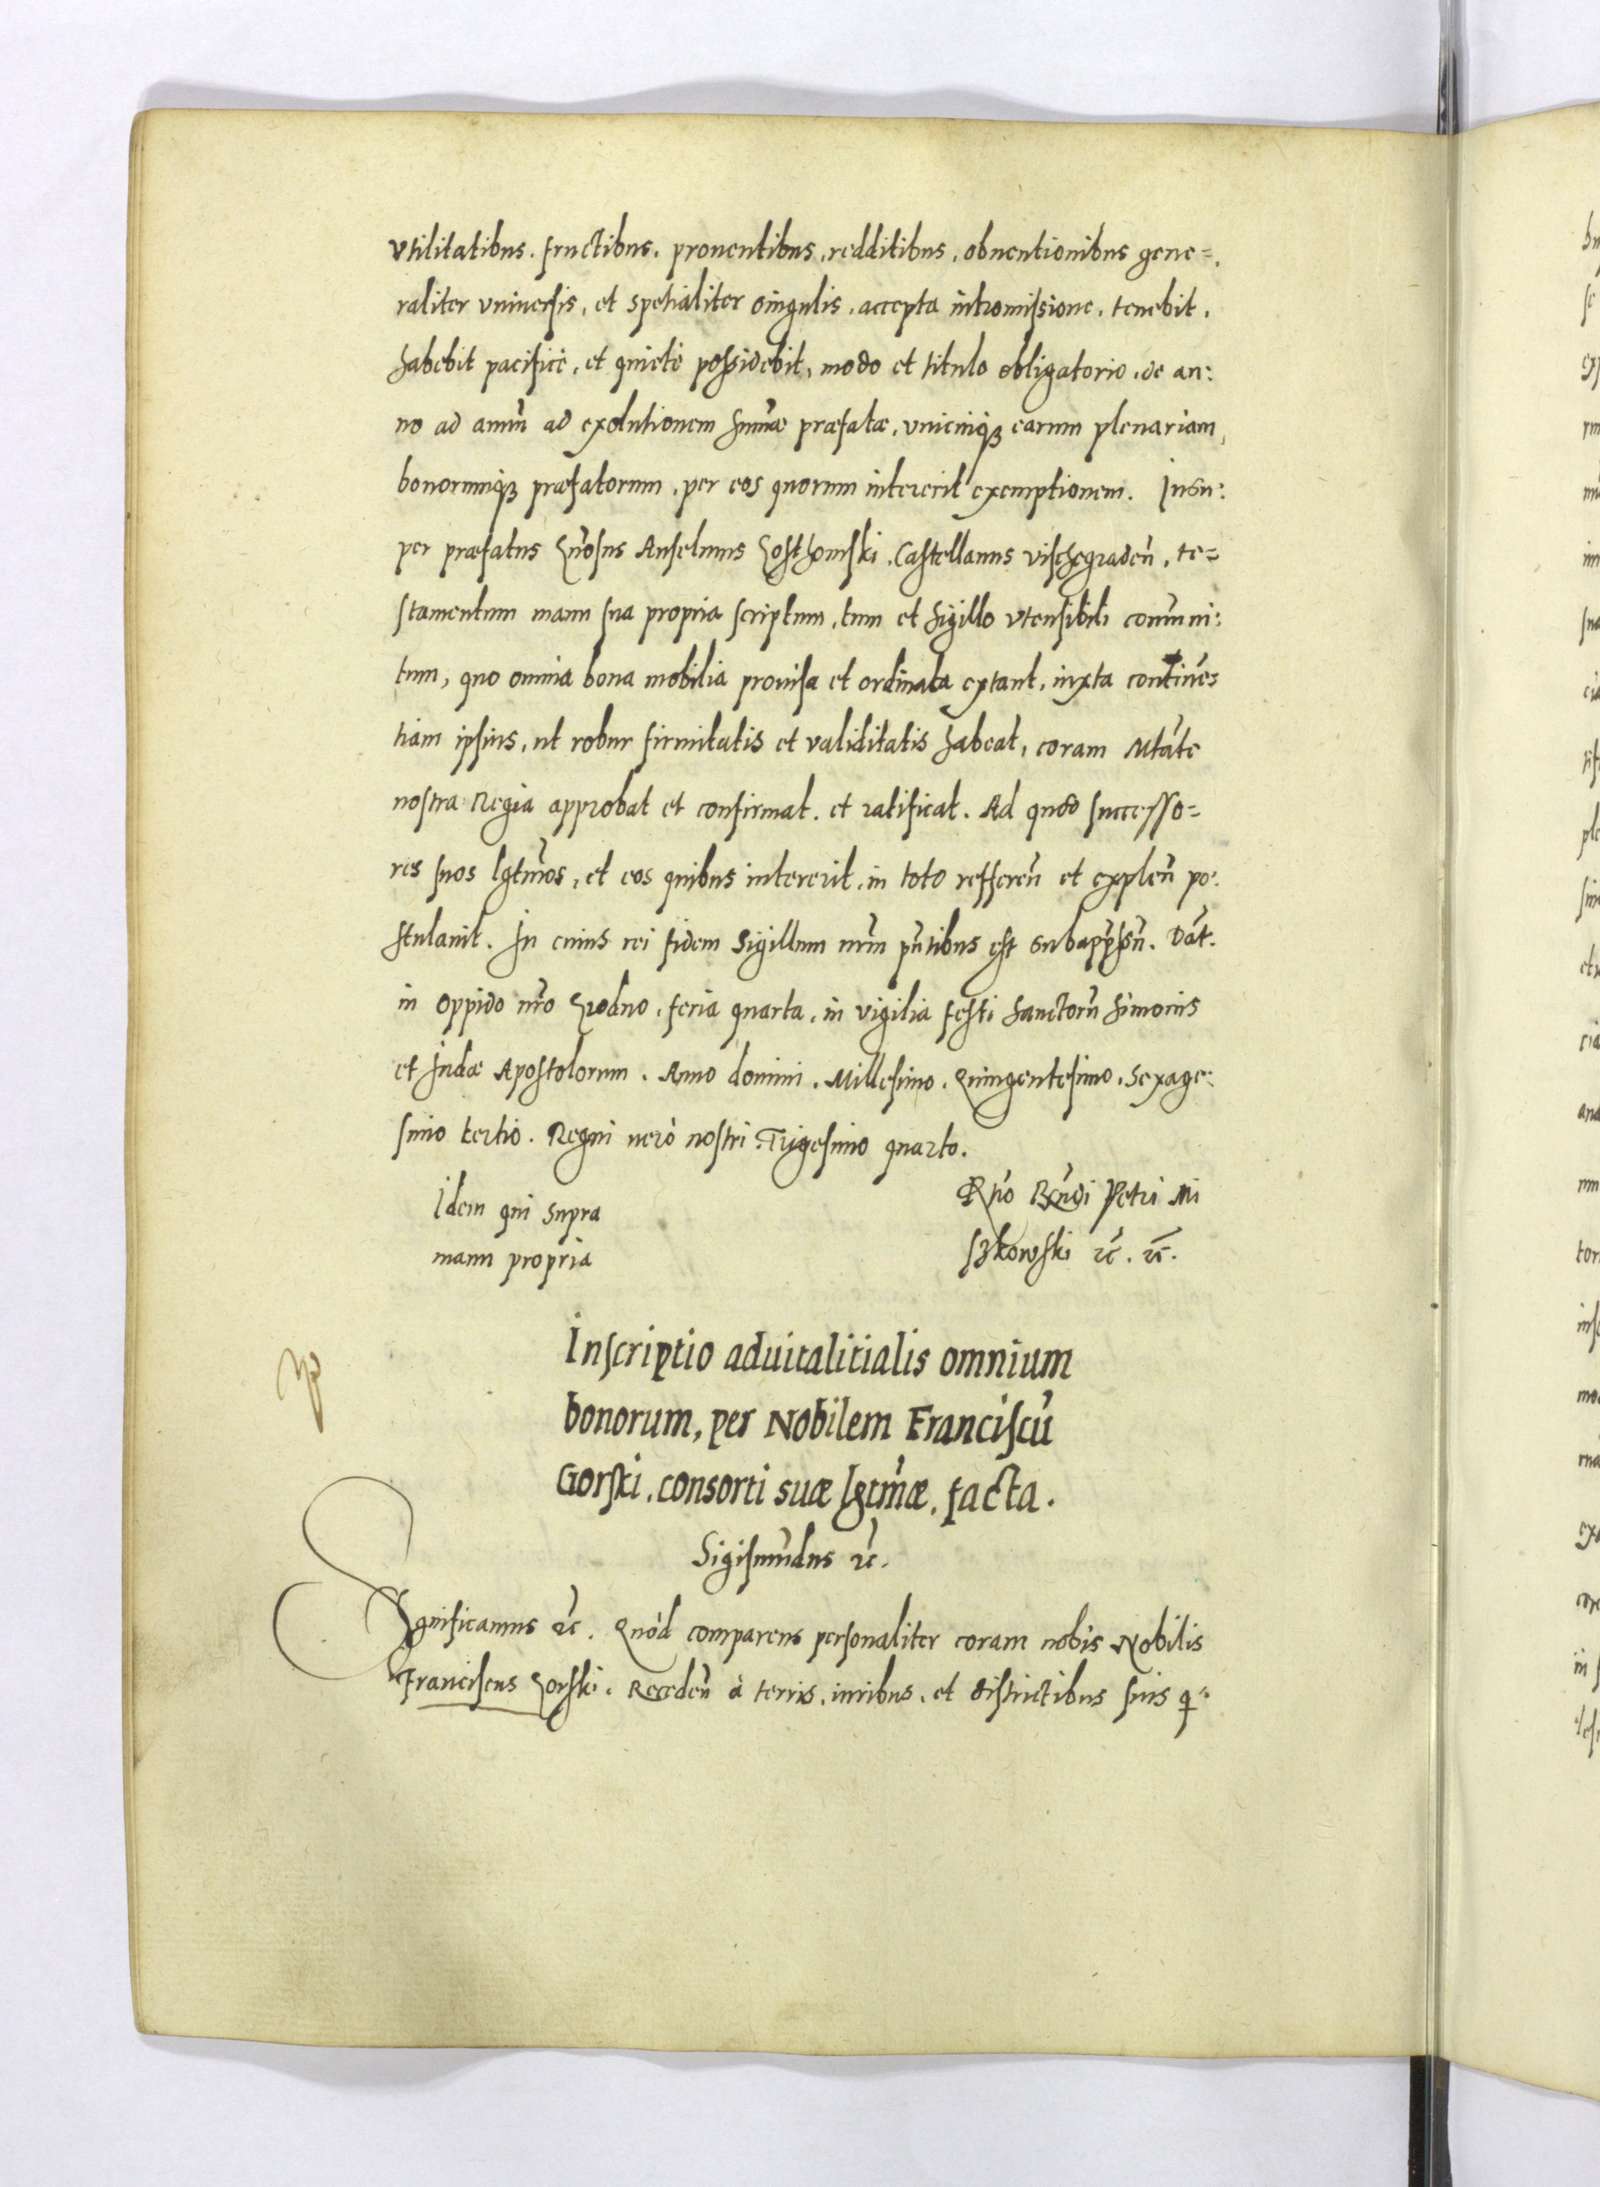 vtilitatibus. fructibus. prouentibus, redditibus, obuentionibus gene=
raliter vniuersis, et spetialiter singulis, accepta intromissione, tenebit,
habebit pacificè, et quietè possidebit, modo et titulo obligatorio, de an:
no ad annũ ad exolutionem sum̃æ præfatæ, vnicuiqꝫ earum plenariam,
bonorumqꝫ præfatorum, per eos quorum intererit exemptionem. Insu:
per præfatus Gñosus Anselmus Gosthomski, Castellanus vischegradeñ, te=
stamentum manu sua propria scriptum, tum et sigillo vtensibili com̃uni:
tum, quo omnia bona mobilia prouisa et ordinata extant, iuxta contineñ
tiam ipsius, ut robur firmitatis et validitatis habeat, coram Mtãte
nostra Regia approbat et confirmat, et ratificat. Ad quod successo=
res suos lgtm̃os, et eos quibus intererit, in toto reffereñ et expleñ po:
stulauit. In cuius rei fidem Sigillum nr̃m pñtibus est subappr̃sũ. Dat̃.
in oppido nr̃o Grodno, feria quarta, in vigilia festi Sanctorũ Simonis
et Iudæ Apostolorum. Anno domini. Millesimo. Quingentesimo. Sexage:
simo tertio. Regni uerò nostri Trigesimo quarto.
Idem qui supra
manu propria
Rtio Rñdi Petri Mi
szkowski ꝛc̃. ꝛc̃.
Inscriptio aduitalitialis omnium
bonorum, per Nobilem Franciscũ
Gorski, consorti suæ lgtm̃æ, facta.
Sigismũdus ꝛc̃.
Significamus ꝛc̃. Quòd comparens personaliter coram nobis Nobilis
Franciscus Gorski. Recedeñ à terris, iuribus, et districtibus suis